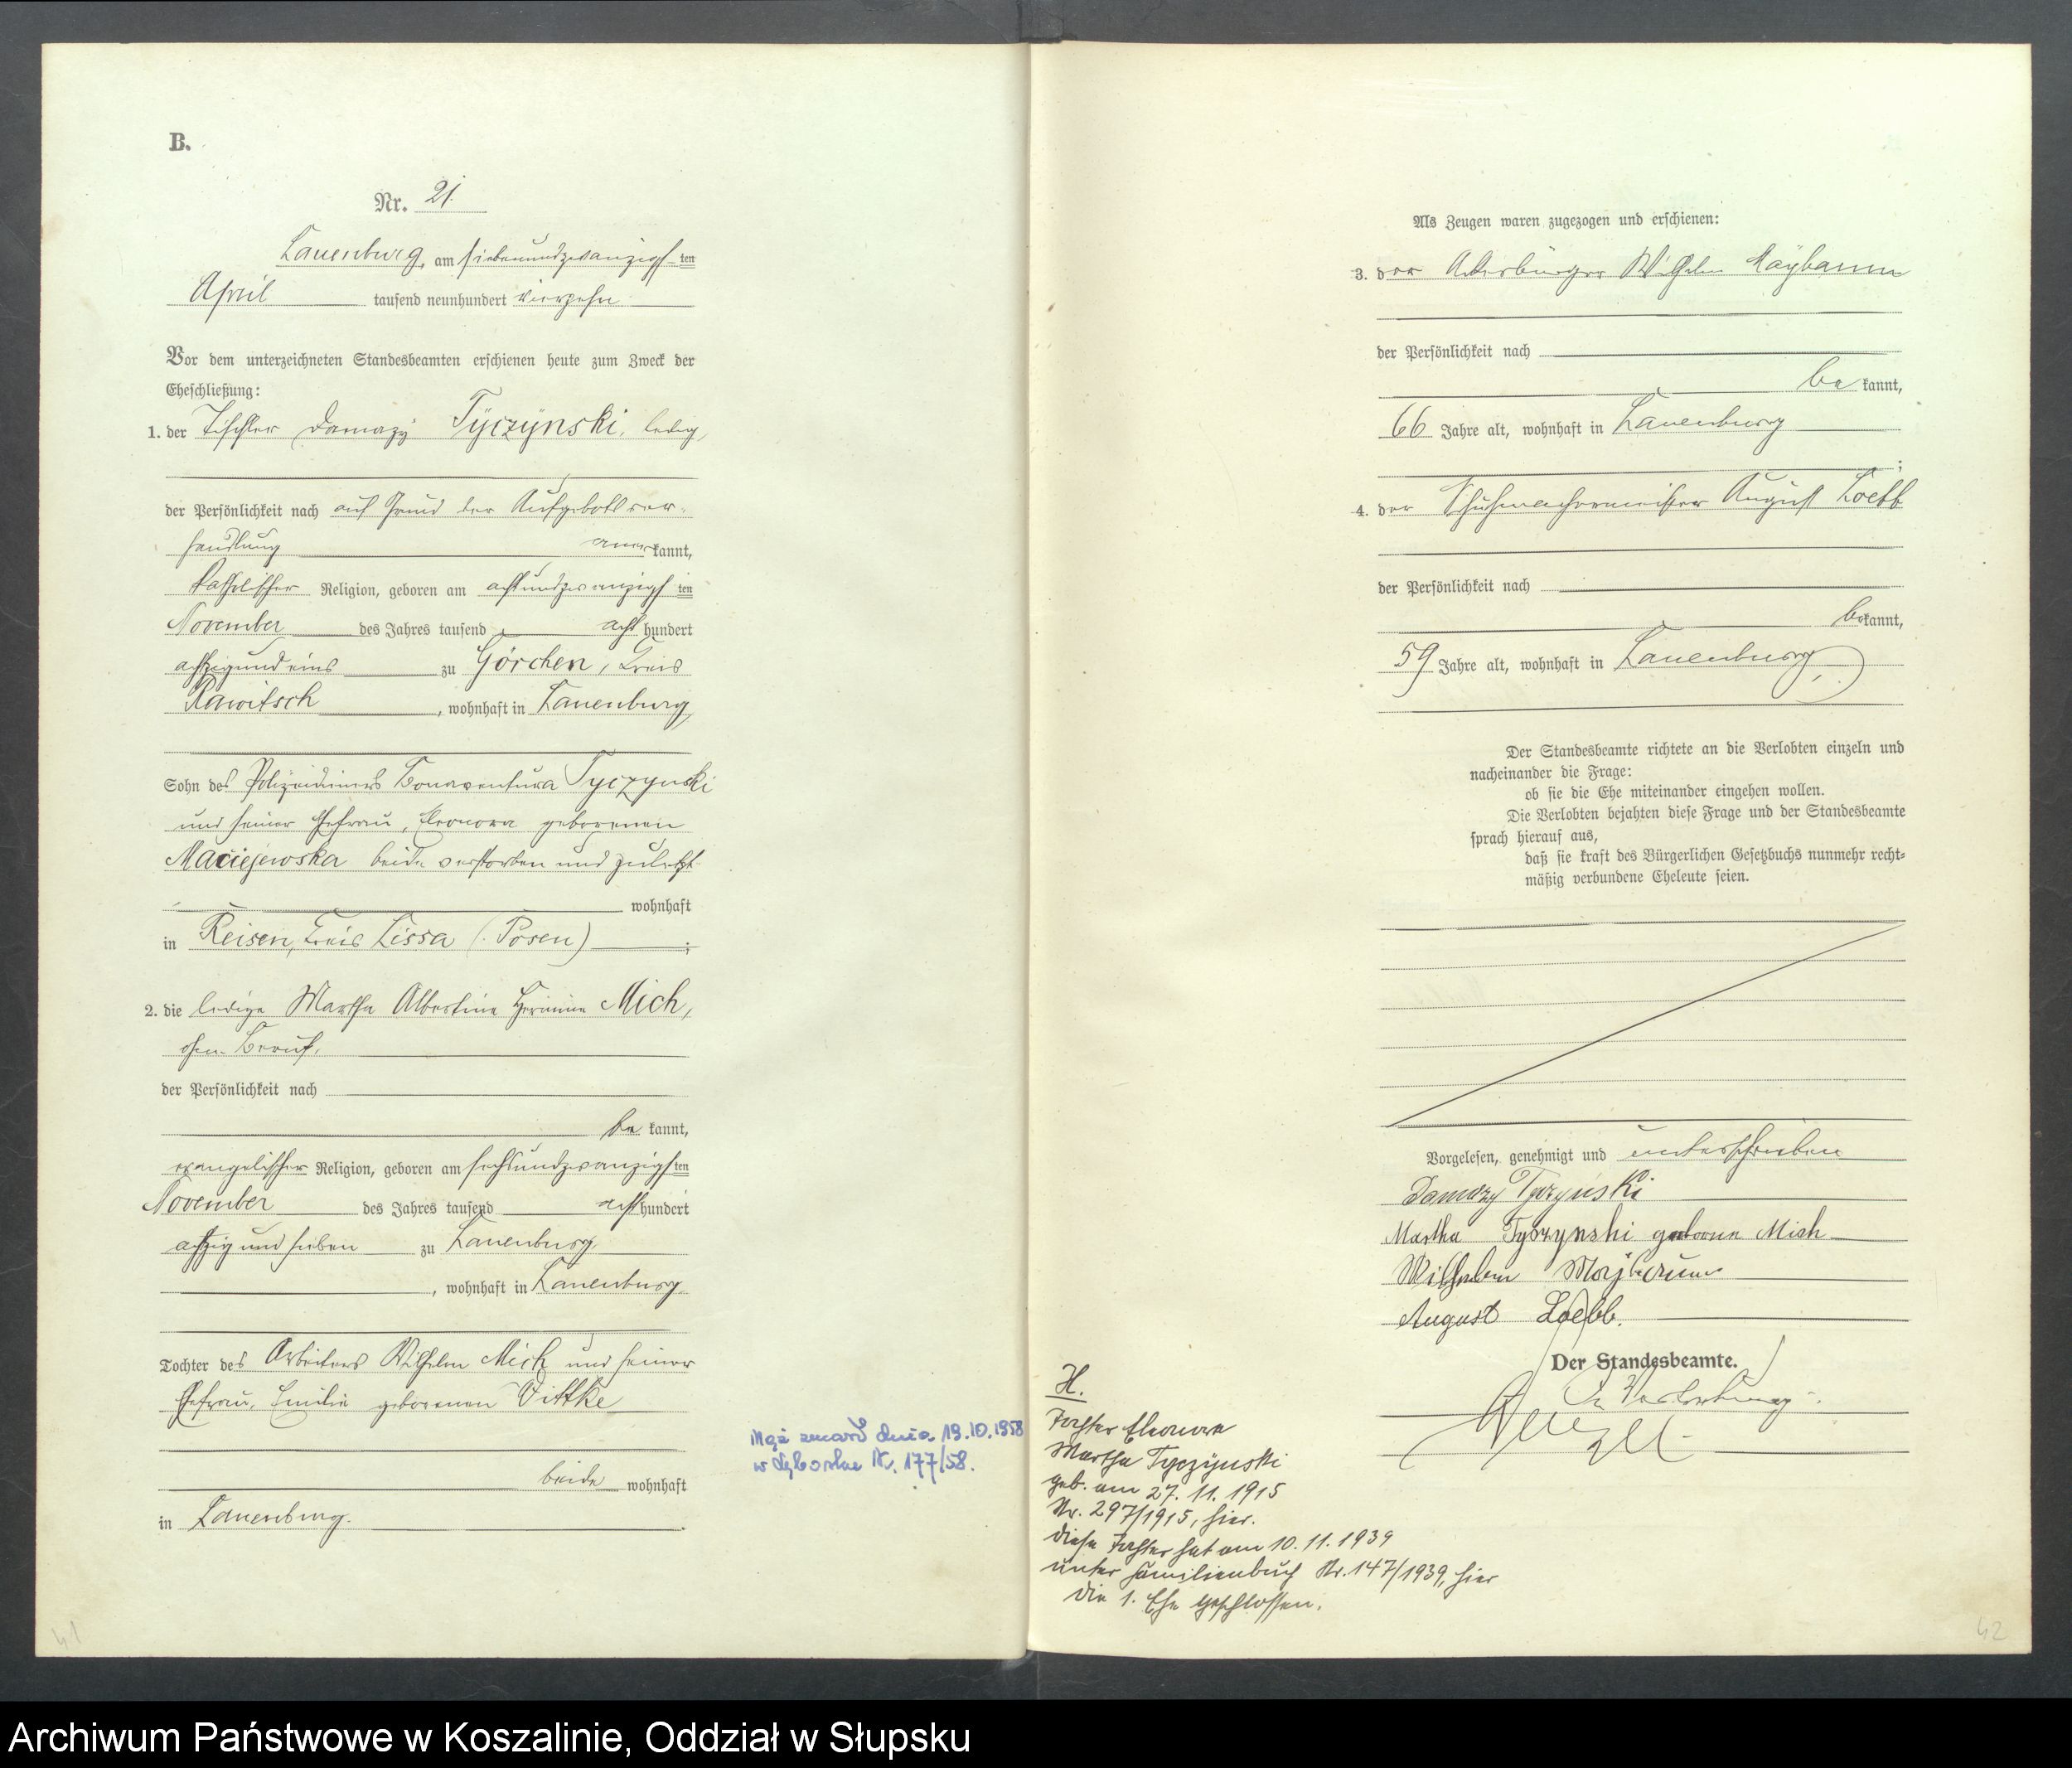 B.
Nr. 21.
Lauenburg, am siebenundzwanzigsten
April tausend neunhundert vierzehn
Vor dem unterzeichneten Standesbeamten erschienen heute zum Zweck der
Eheschließung:
1. der Tischler Damazy Tyczynski, ledig,
der Persönlichkeit nach auf Grund der Aufgebotsver-
handlung anerkannt,
katholischer Religion, geboren am achtundzwanzigsten
November des Jahres tausend achthundert
achtzigundeins zu Görchen, Kreis
Rawitsch, wohnhaft in Lauenburg,
Sohn des Polizeidieners Bonaventura Tyczynski
und seiner Ehefrau, Eleonora geborenen
Maciejewska beide verstorben und zuletzt
wohnhaft
in Reisen, Kreis Lissa (Posen);
2. die ledige Martha Albertine Hermine Mich,
ohne Beruf,
der Persönlichkeit nach
bekannt,
evangelischer Religion, geboren am sechsundzwanzigsten
November des Jahres tausend achthundert
achtzig und sieben zu Lauenburg
, wohnhaft in Lauenburg,
Tochter des Arbeiters Wilhelm Mich und seiner
Ehefrau, Emilie geborenen Vittke
beide wohnhaft
in Lauenburg.
Mąż zmarł dnia 19.10.1958
w Lęborku Nr. 177/58.
41
Als Zeugen waren zugezogen und erschienen:
3. der Ackerbürger Wilhelm Maÿbaum
der Persönlichkeit nach
bekannt,
66 Jahre alt, wohnhaft in Lauenburg
;
4. der Schuhmachermeister August Loebb
der Persönlichkeit nach
bekannt,
59 Jahre alt, wohnhaft in Lauenburg,
Der Standesbeamte richtete an die Verlobten einzeln und
nacheinander die Frage:
ob sie die Ehe miteinander eingehen wollen.
Die Verlobten bejahten diese Frage und der Standesbeamte
sprach hierauf aus,
daß sie kraft des Bürgerlichen Gesetzbuchs nunmehr recht-
mäßig verbundene Eheleute seien.
Vorgelesen, genehmigt und unterschrieben
Damazy Tyczyński
Martha Tyczynski geborene Mich
Wilhelm Maÿbaum
August Loebb.
Der Standesbeamte.
In Vertretung:
H.
Tochter Eleonora
Martha Tyczÿnski
geb. am 27. 11. 1915
Nr. 297/1915, hier.
Diese Tochter hat am 10. 11. 1939
unter Familienbuch Nr. 147/1939, hier
die 1. Ehe geschlossen.
42
Archiwum Państwowe w Koszalinie, Oddział w Słupsku